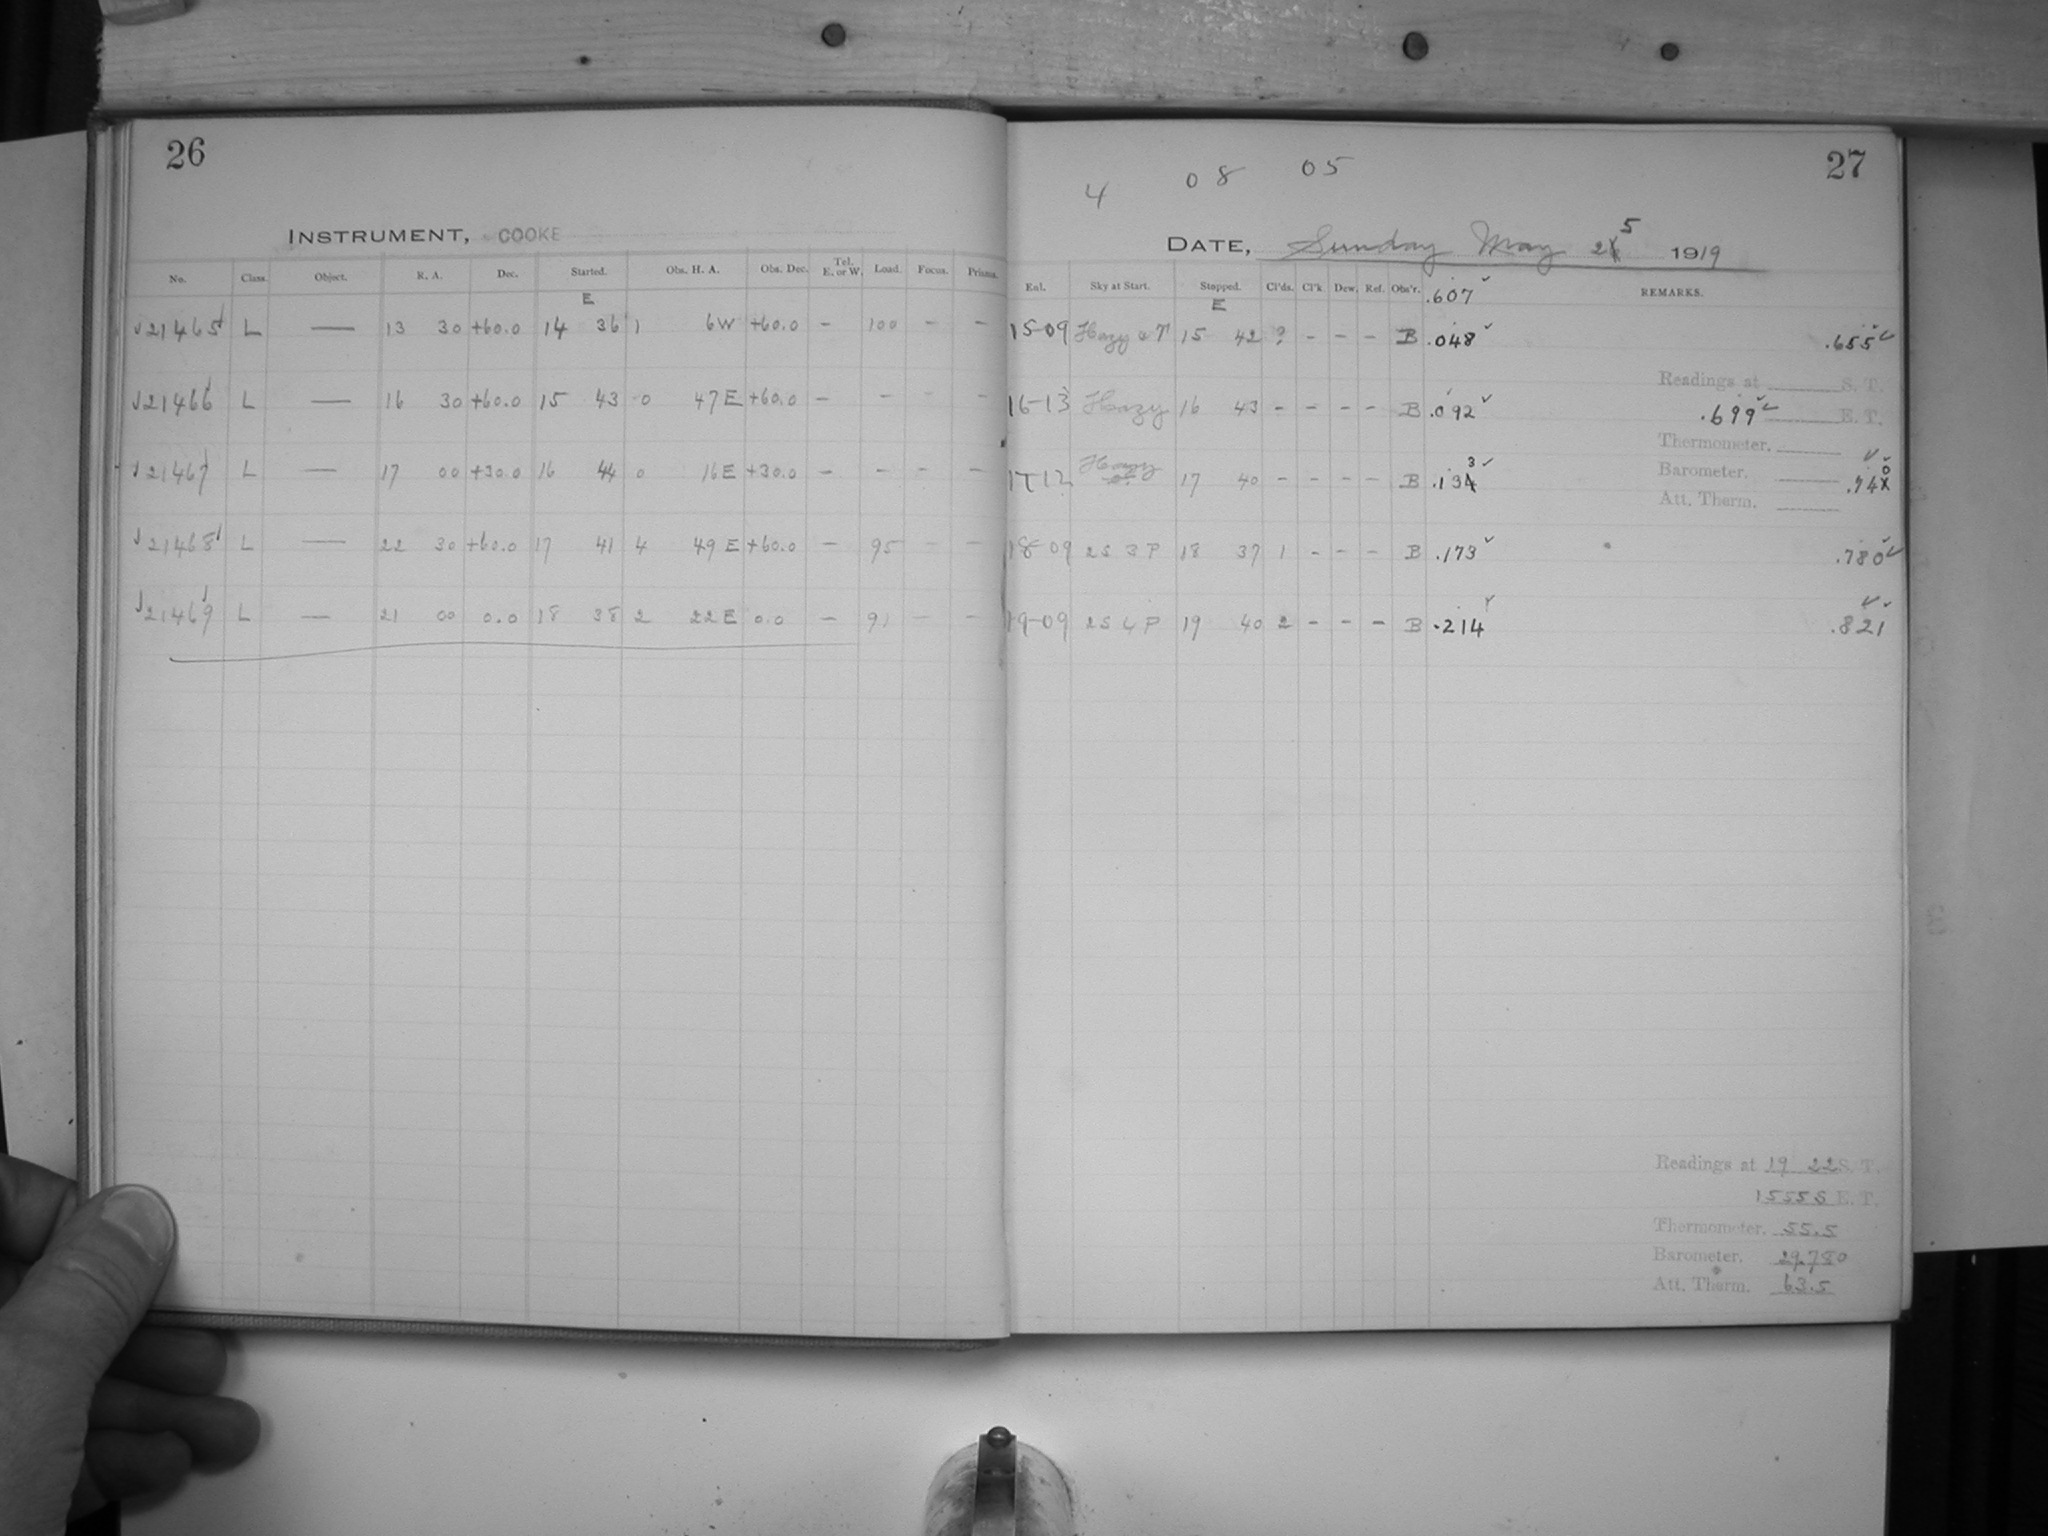 26
INSTRUMENT, COOKE
No. Class. Object. R. A. Dec. Started. Obs. H. A. Obs. Dec. Tel. E. or W. Load. Focus. Prisms.
E
21465 L — 13 30 +60.0 14 36 1 6W +60.0 - 100 - -
21466 L — 16 30 +60.0 15 43 0 47E +60.0 - - - -
21467 L — 17 00 +30.0 16 44 0 16E +30.0 - - - -
21468 L — 22 30 +60.0 17 41 4 49E +60.0 - 95 - -
21469 L — 21 00 0.0 18 38 2 22E 0.0 - 91 - -
27
4 08 05
DATE, Sunday May 25 1919
Enl. Sky at Start. Stopped. Cl'ds. Cl'k. Dew. Ref. Obs'r. .607 REMARKS.
E
15-09 Hazy 15 42 ? - - - B .048 .655
Readings at S. T.
16-13 Hazy 16 43 - - - - B .092 .699 E. T.
Thermometer.
17 12 Hazy 17 40 - - - - B .133 Barometer. .740
Att. Therm.
18-09 2S 3P 18 37 1 - - - B .173 .780
19-09 2S 4P 19 40 2 - - - B .214 .821
Readings at 19 22 S. T.
15555 E. T.
Thermometer. 55.5
Barometer. 29.780
Att. Therm. 63.5